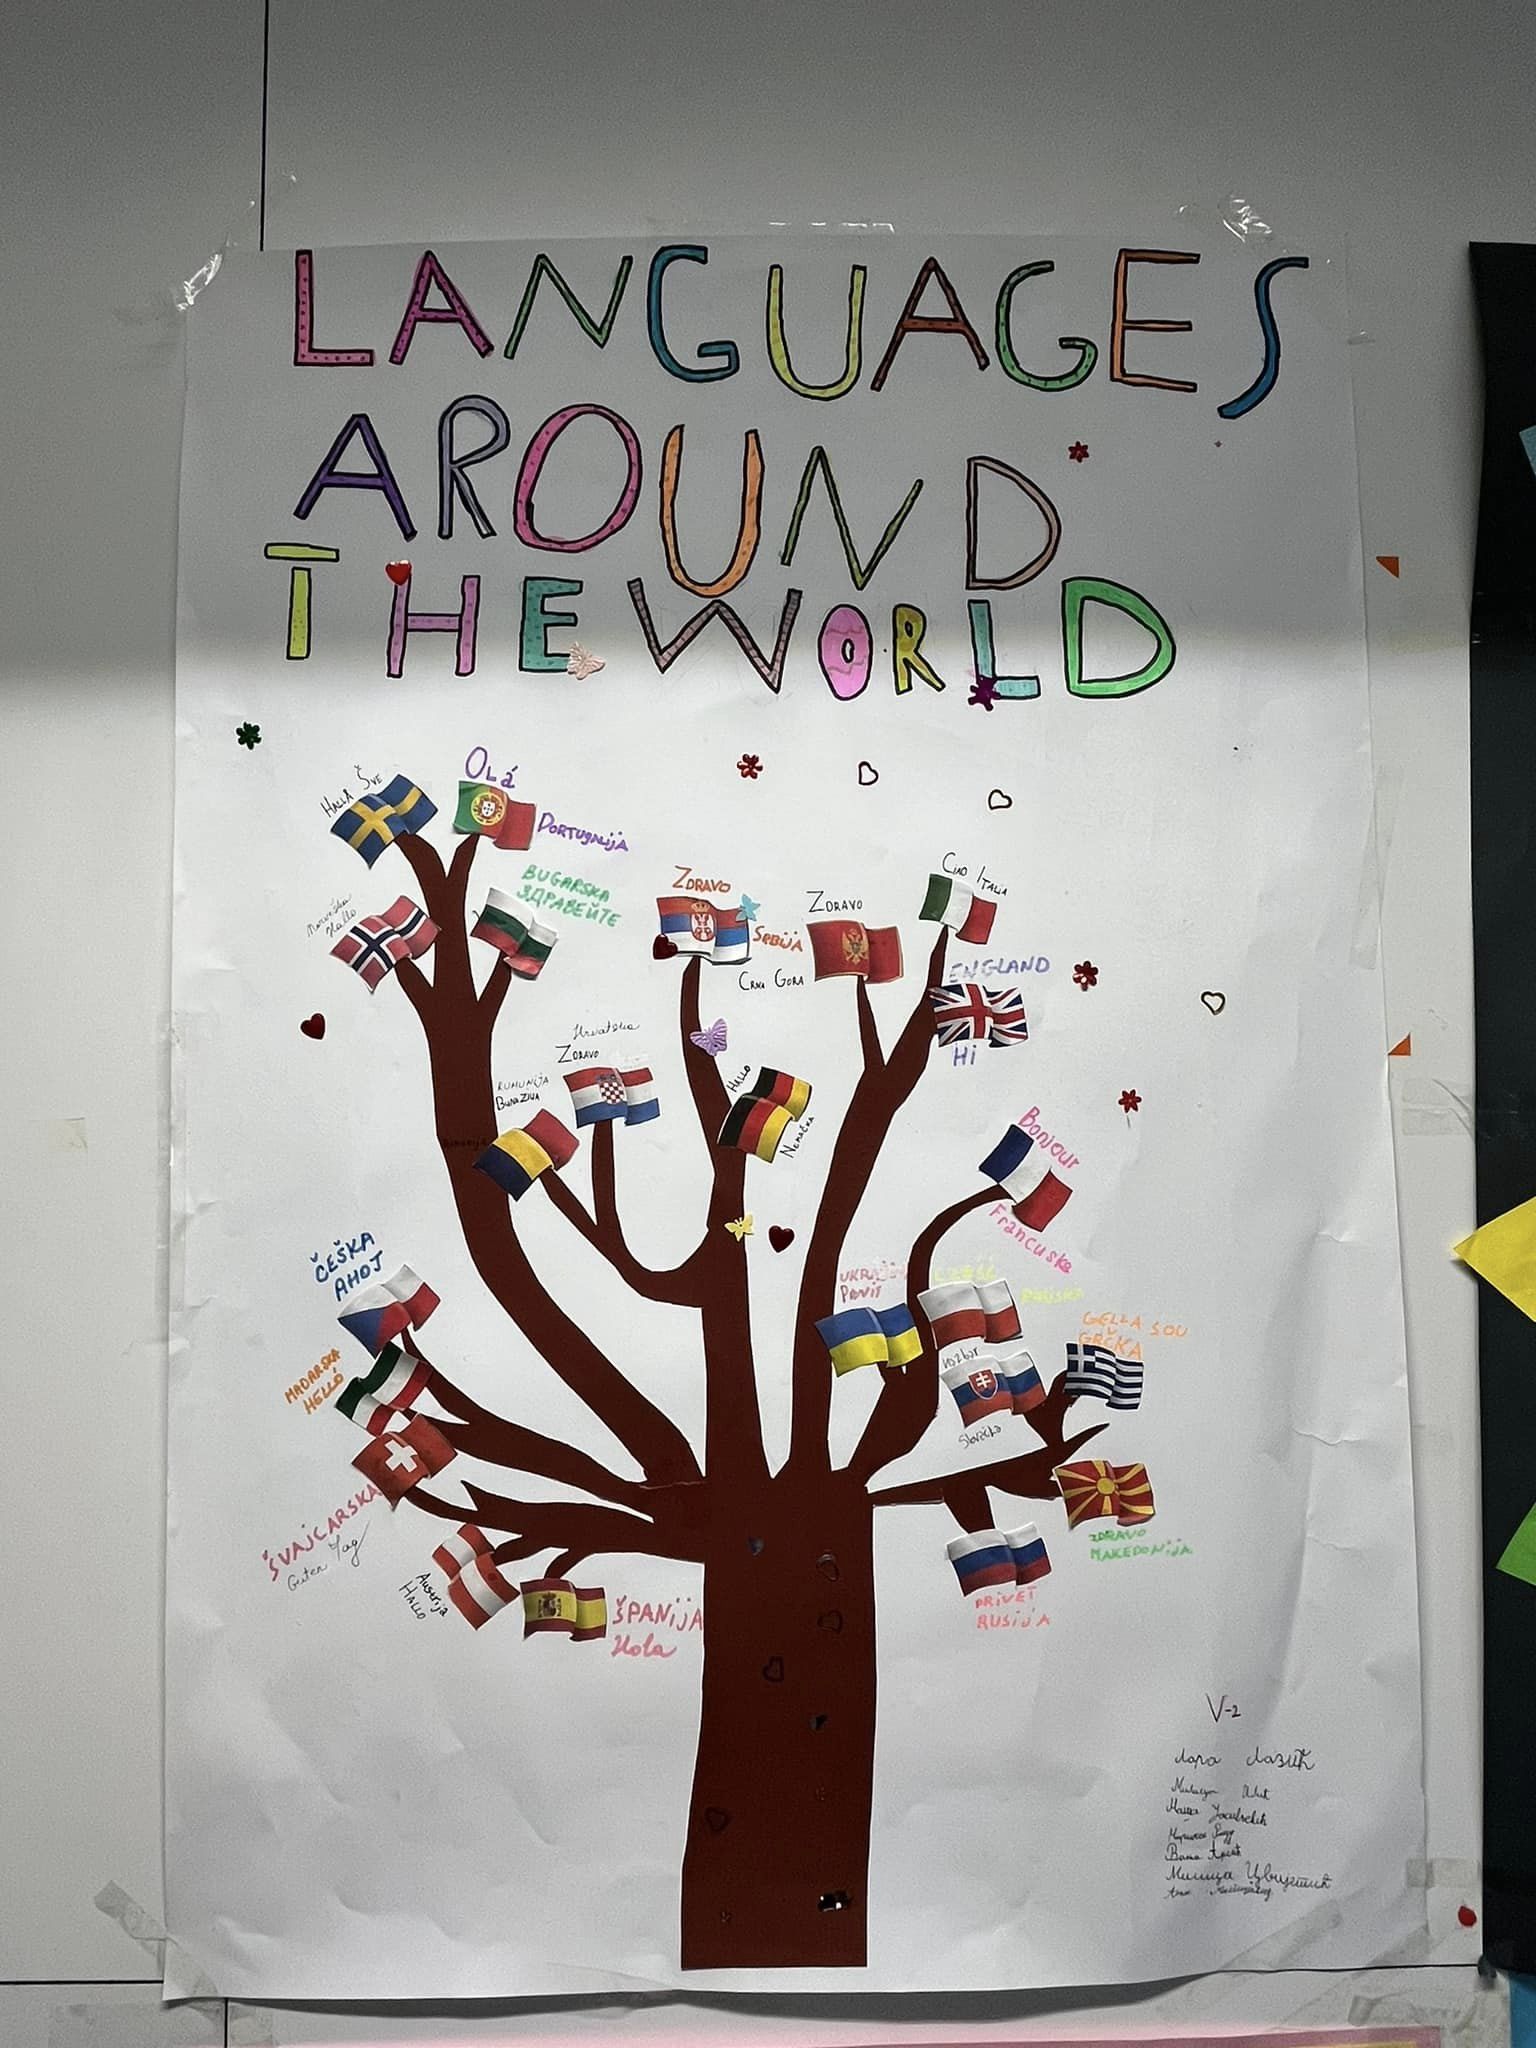 LANGUAGES
AROUND
THE WORLD
HALLA ŠVE
OLá
PORTUGALIJA
BUGARSKA
ЗДРАВЕЙТЕ
Norveška
Hallo
ZDRAVO
SRBIJA
ZDRAVO
CRNA GORA
CIAO ITALIA
ENGLAND
Hi
Hrvatska
ZDRAVO
RUMUNIJA
HALLO
NEMAČKA
Bonjour
Francuska
ČEŠKA
AHOJ
MAĐARSKA
HELLÓ
UKRAJINA
CZEŚĆ
POLJSKA
GELLA SOU
GRČKA
Slovačka
ŠVAJCARSKA
Guten Tag
AUSTRIJA
HALLO
ŠPANIJA
Hola
ZDRAVO
MAKEDONIJA
PRIVET
RUSIJA
V-2
Лара Лазић
Милица Цвијетић